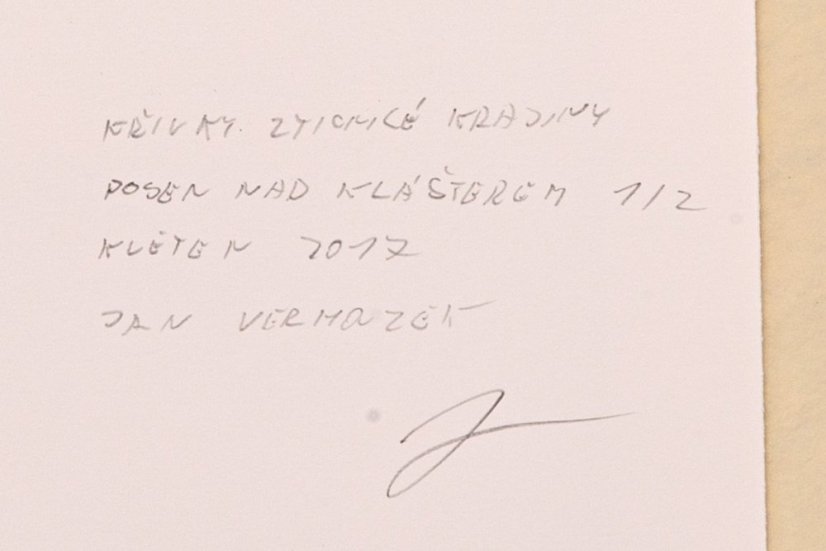 KŘIVKY ZTICHLÉ KRAJINY
POSED NAD KLÁŠTEREM 1/2
KVĚTEN 2017
JAN VERMOUZEK